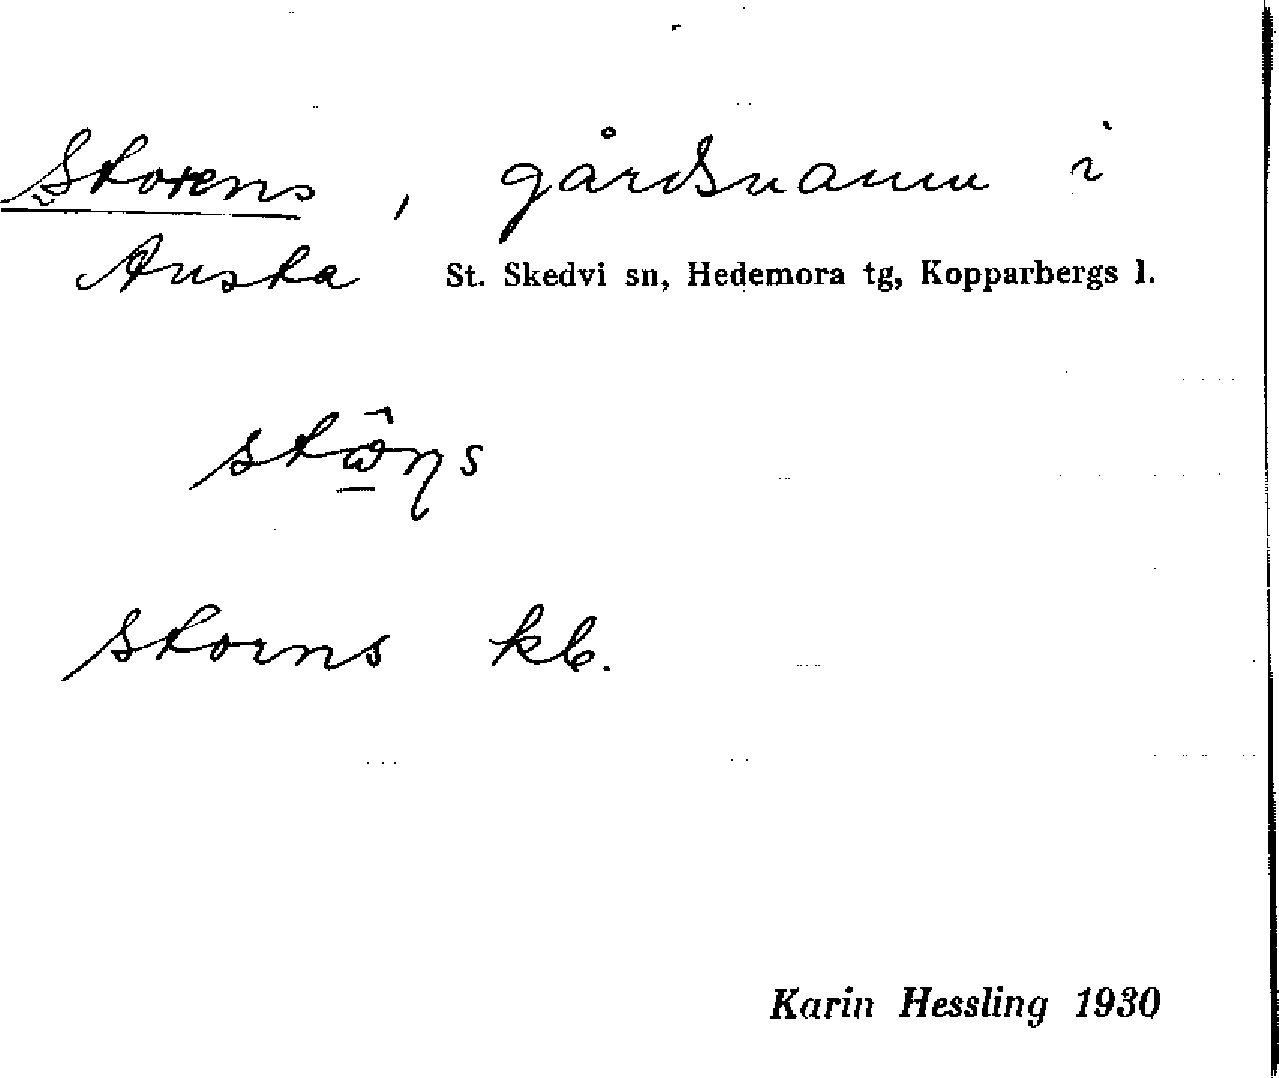 Storens, gårdsnamn i
Ansta St. Skedvi sn, Hedemora tg, Kopparbergs l.
Storns kb.
Karin Hessling 1930